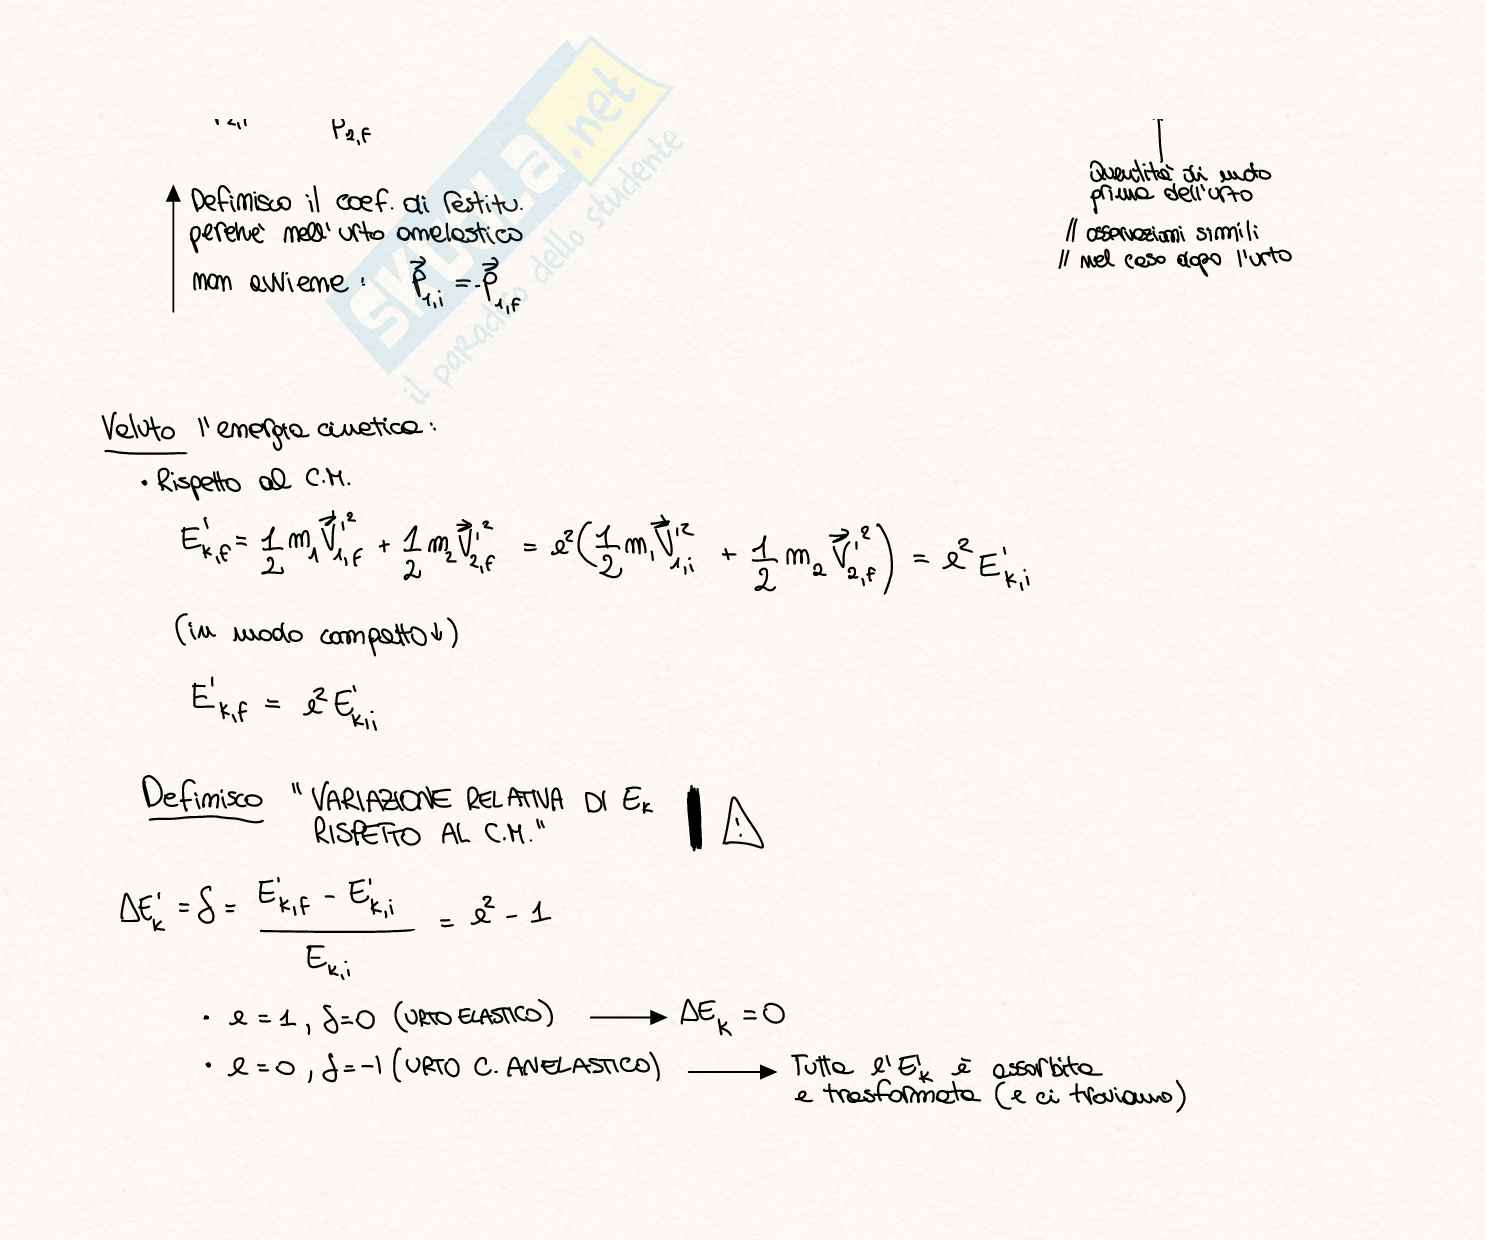 P2,f
Definisco il coef. di restitu.
perchè nell'urto anelastico
non avviene: P⃗1,i = -P⃗1,f
Quantità di moto
prima dell'urto
// osservazioni simili
// nel caso dopo l'urto
SKUOLA.net
il paradiso dello studente
Valuto l'energia cinetica:
• Rispetto al C.M.
E'k,f = 1/2 m1 V⃗'²1,f + 1/2 m2 V⃗'²2,f = e²(1/2 m1 V⃗'²1,i + 1/2 m2 V⃗'²2,f) = e² E'k,i
(in modo compatto↓)
E'k,f = e² E'k,i
Definisco "VARIAZIONE RELATIVA DI Ek
RISPETTO AL C.M."
!
ΔE'k = δ = (E'k,f - E'k,i) / Ek,i = e² - 1
• e = 1, δ=0 (URTO ELASTICO) → ΔEk = 0
• e = 0, δ=-1 (URTO C. ANELASTICO) → Tutta l'E'k è assorbita
e trasformata (e ci troviamo)